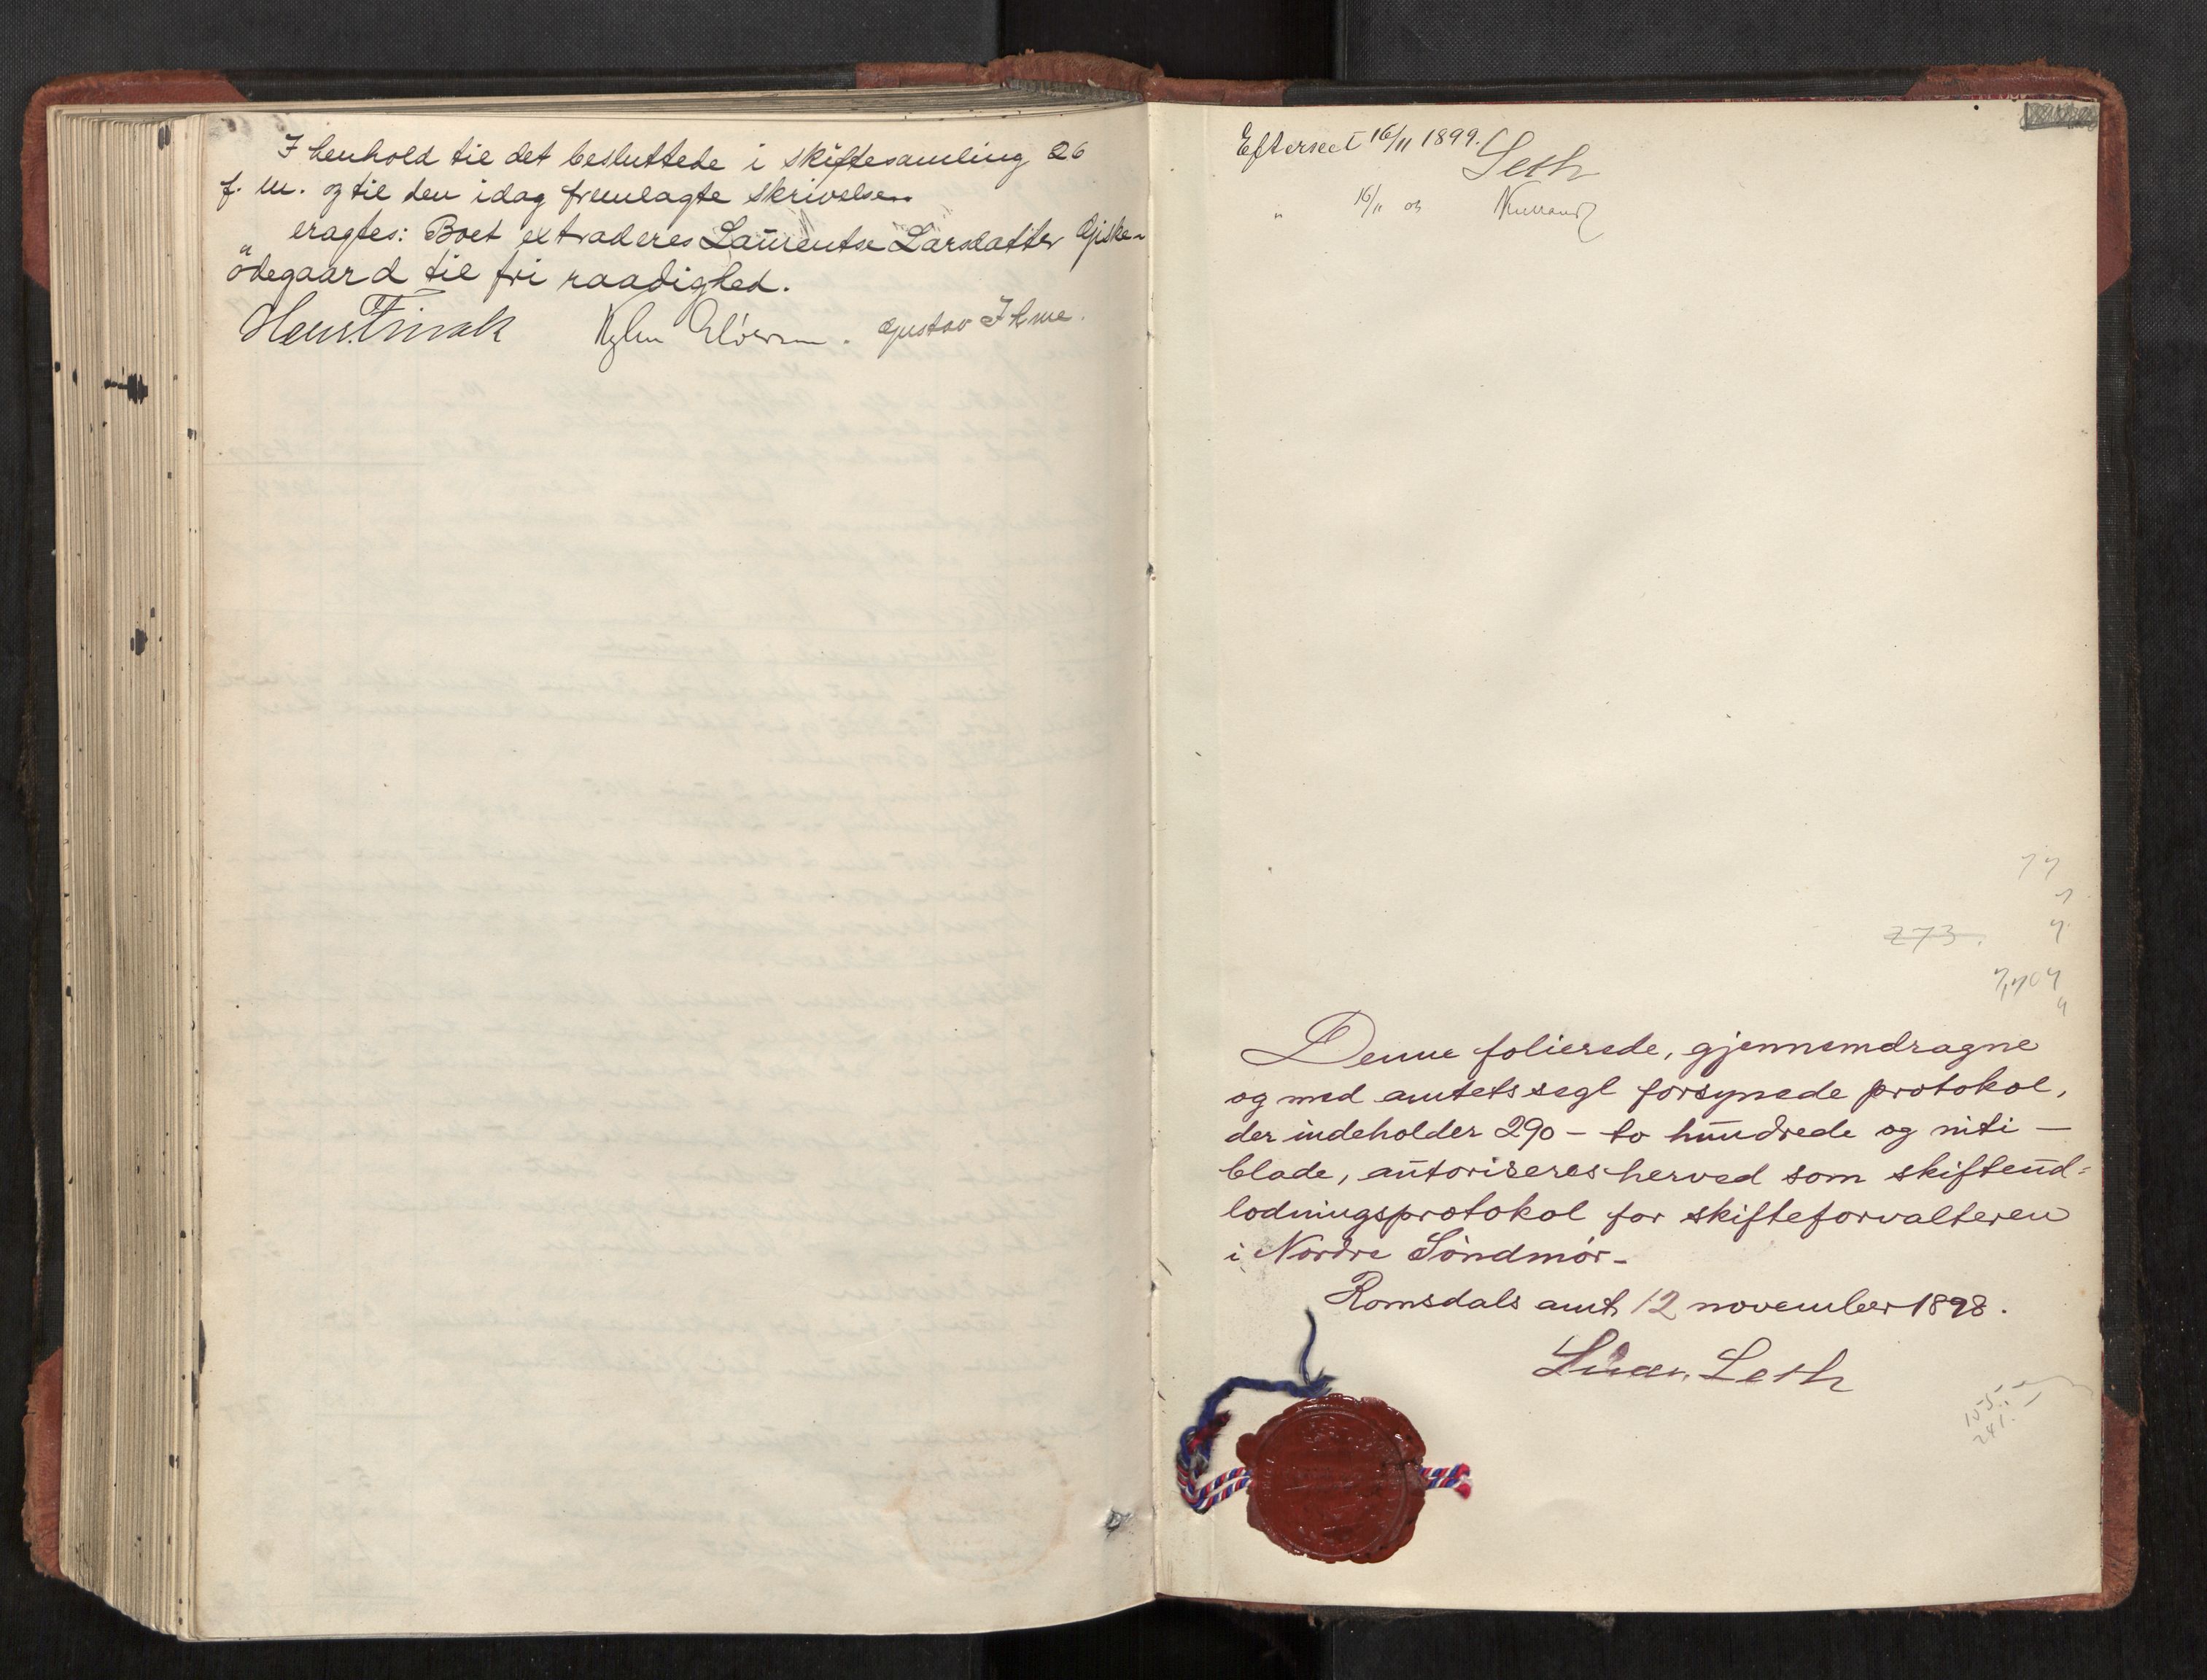 I henhold til det besluttede i skiftesamling 26
f. m. og til den idag fremlagte skrivelse
eragtes: Boet extraderes Laurentse Larsdatter Gjiske-
ödegaard til fri raadighed.
Gustav Ihme.
Efterseet 16/11 1899.
Leth
" 16/11 01
273.
Denne folierede, gjennemdragne
og med amtets segl forsynede protokol,
der indeholder 290 - to hundrede og niti -
blade, autoriseres herved som skifteud-
lodningsprotokol for skifteforvalteren
i Nordre Söndmör.
Romsdals amt 12 november 1898.
Leth
155
241